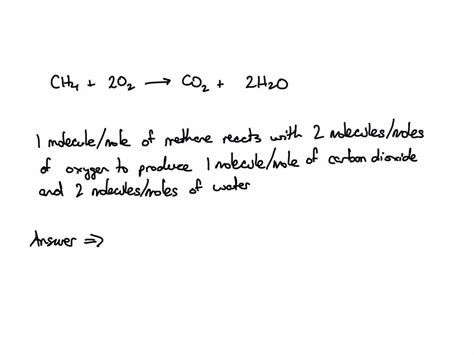 CH₄ + 2O₂ ⟶ CO₂ + 2H₂O
1 molecule/mole of methane reacts with 2 molecules/moles
of oxygen to produce 1 molecule/mole of carbon dioxide
and 2 molecules/moles of water
Answer ⇒